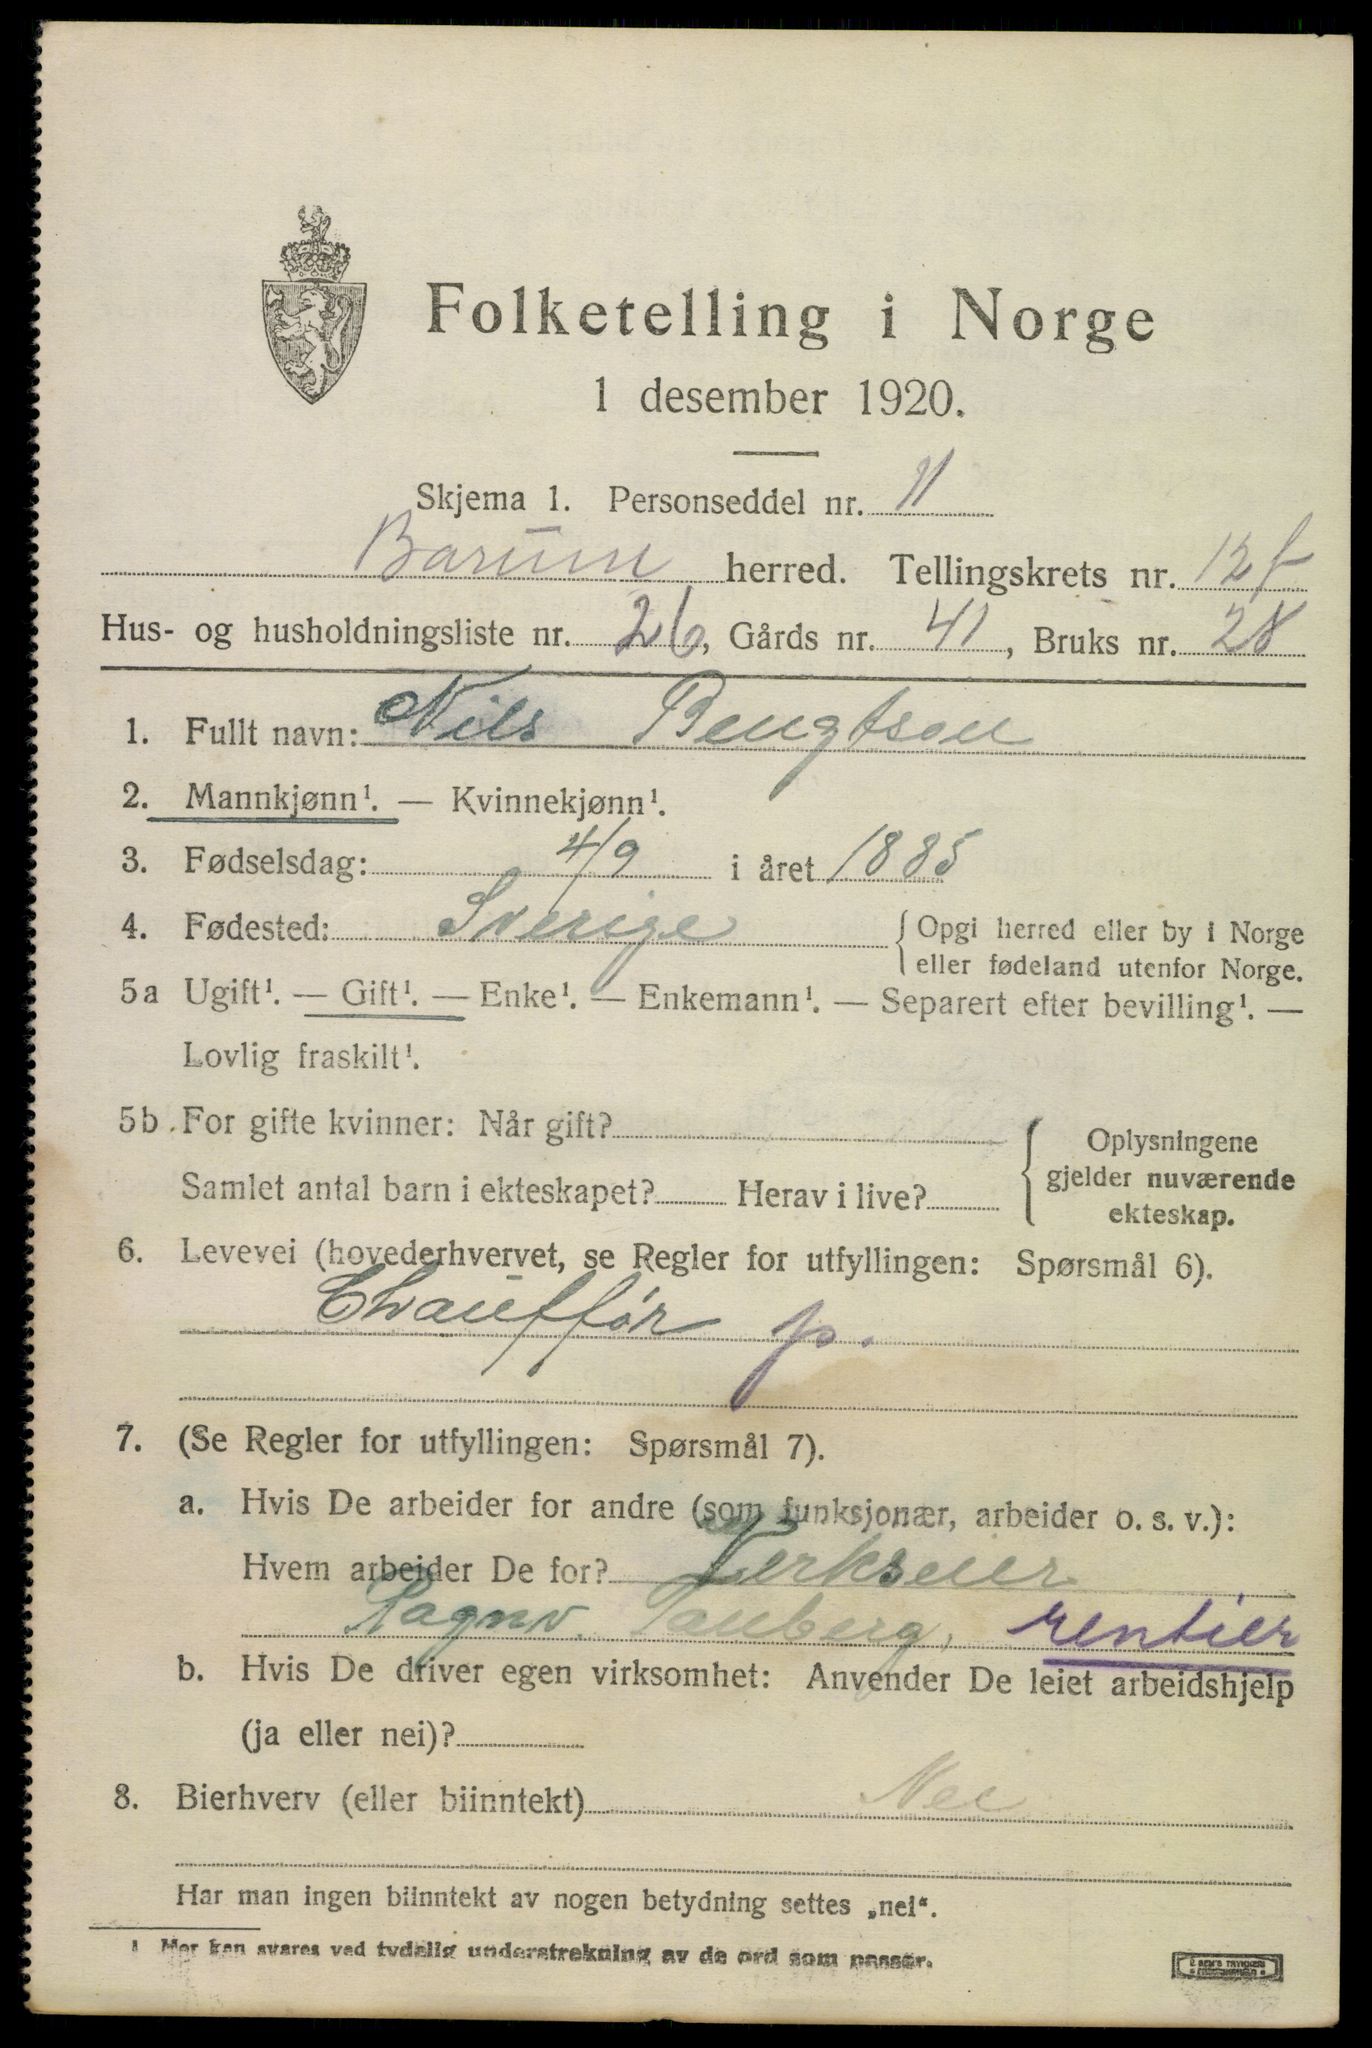 Folketelling i Norge
1 desember 1920.
Skjema 1. Personseddel nr. 11
Barum herred. Tellingskrets nr. 12f
Hus- og husholdningsliste nr. 26, Gårds nr. 41, Bruks nr. 28
1. Fullt navn: Nils Bengtson
2. Mannkjønn¹. — Kvinnekjønn¹.
3. Fødselsdag: 4/9 i året 1885
4. Fødested: Sverige { Opgi herred eller by i Norge
eller fødeland utenfor Norge.
5a Ugift¹. — Gift¹. — Enke¹. — Enkemann¹. — Separert efter bevilling¹. —
Lovlig fraskilt¹.
5b For gifte kvinner: Når gift? { Oplysningene
gjelder nuværende
Samlet antal barn i ekteskapet? Herav i live?
ekteskap.
6. Levevei (hovederhvervet, se Regler for utfyllingen: Spørsmål 6).
Chauffør p.
7. (Se Regler for utfyllingen: Spørsmål 7).
a. Hvis De arbeider for andre (som funksjonær, arbeider o. s. v.):
Hvem arbeider De for? Verkseier
Ragnv. Tanberg, rentier
b. Hvis De driver egen virksomhet: Anvender De leiet arbeidshjelp
(ja eller nei)?
8. Bierhverv (eller biinntekt) Nei
Har man ingen biinntekt av nogen betydning settes „nei“.
1 Her kan svares ved tydelig understrekning av de ord som passer.